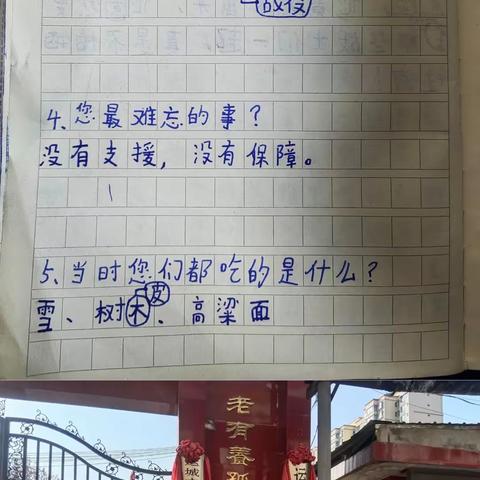 战役
4、您最难忘的事？
没有支援，没有保障。
5、当时您们都吃的是什么？
雪、树皮、高粱面
老有养
城
运